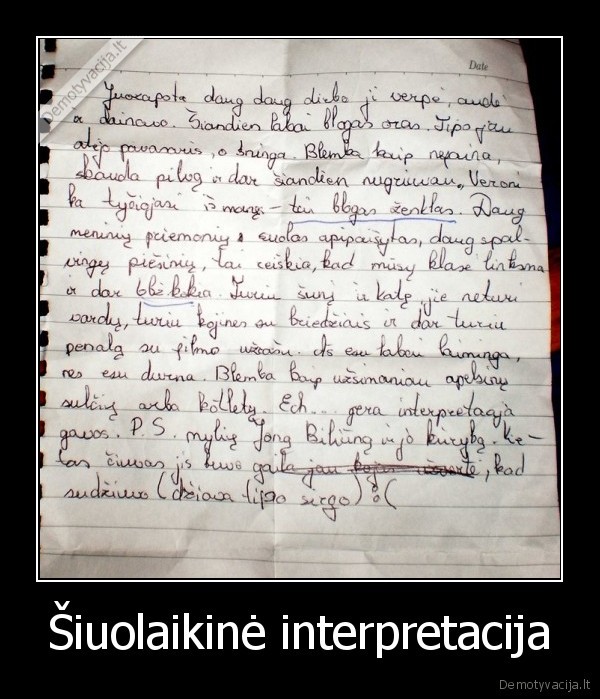 Demotyvacija.lt
Date
Juozapota daug daug dirbo ji verpė, audė
ir dainavo. Šiandien labai blogas oras. Tipo jau
atėjo pavasaris, o sninga. Blemba kaip nepaina,
skauda pilvą ir dar šiandien nugriuvau, Veroni
ka tyčiojasi iš manęs - tai blogas ženklas. Daug
meninių priemonių: suolas apipaišytas, daug spal-
vingų piešinių, tai reiškia, kad mūsų klasė linksma
ir dar ble kokia. Turiu šunį ir katę, jie neturi
vardų, turiu kojines su briedžiais ir dar turiu
penalą su filmo užrašu. Aš esu labai laiminga,
nes esu durna. Blemba kaip užsimaniau apelsinų
sulčių arba kotletų. Ech... gera interpretacija
gavos. P.S. myliu Joną Biliūną ir jo kūrybą. Ke-
tas čiuvas jis buvo gaila jau, kad
sudžiuvo (džiova tipo sirgo) :(
Šiuolaikinė interpretacija
Demotyvacija.lt